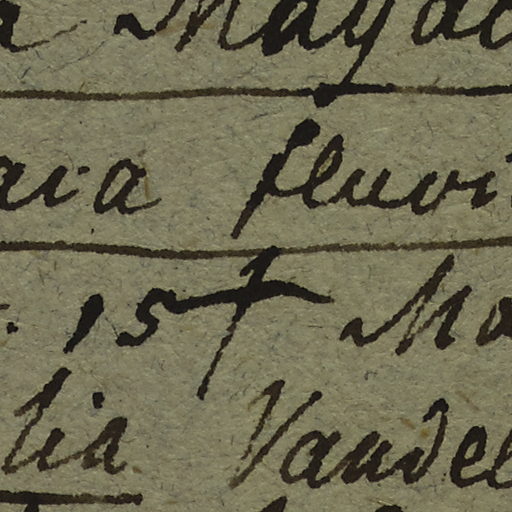 a Magda
ara fluvi
. 15 † Ma
lia Vandel